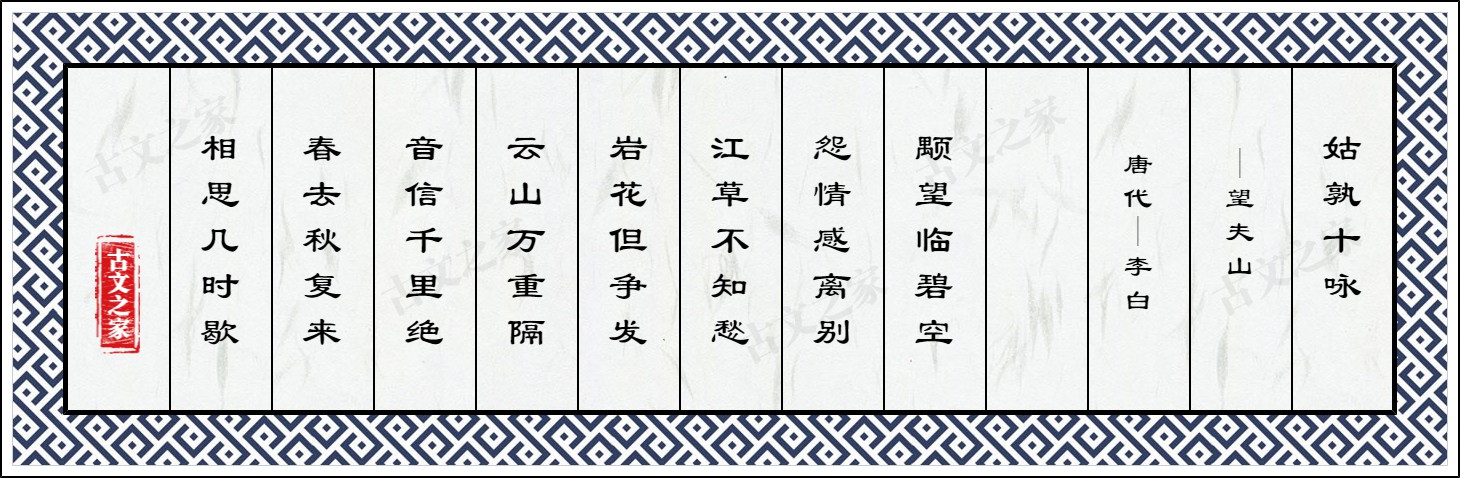 姑孰十咏
—望夫山
唐代—李白
颙望临碧空
怨情感离别
江草不知愁
岩花但争发
云山万重隔
音信千里绝
春去秋复来
相思几时歇
古文之家